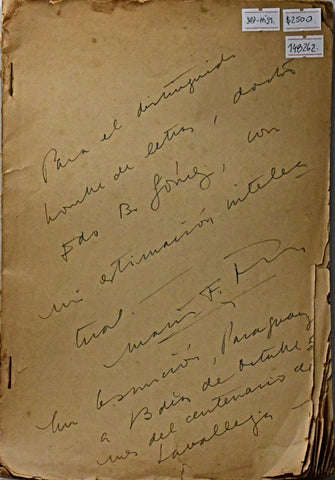 303-hist.
$2500
148262.
Para el distinguido
hombre de letras, doctor
Edo B. Gómez, con
mi estimación intelec
tual.
Mario F.
En Asunción, Paraguay
a 13 días de octubre
mes del centenario de
Lavalleja